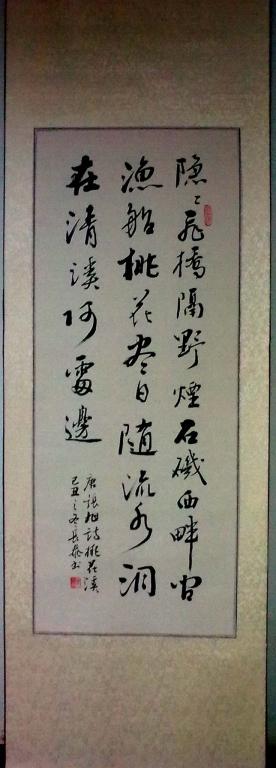 隐〻飛橋隔野煙石磯西畔问
漁船桃花尽日隨流水洞
在清溪何處邊
唐張旭詩桃花溪
己丑之冬書